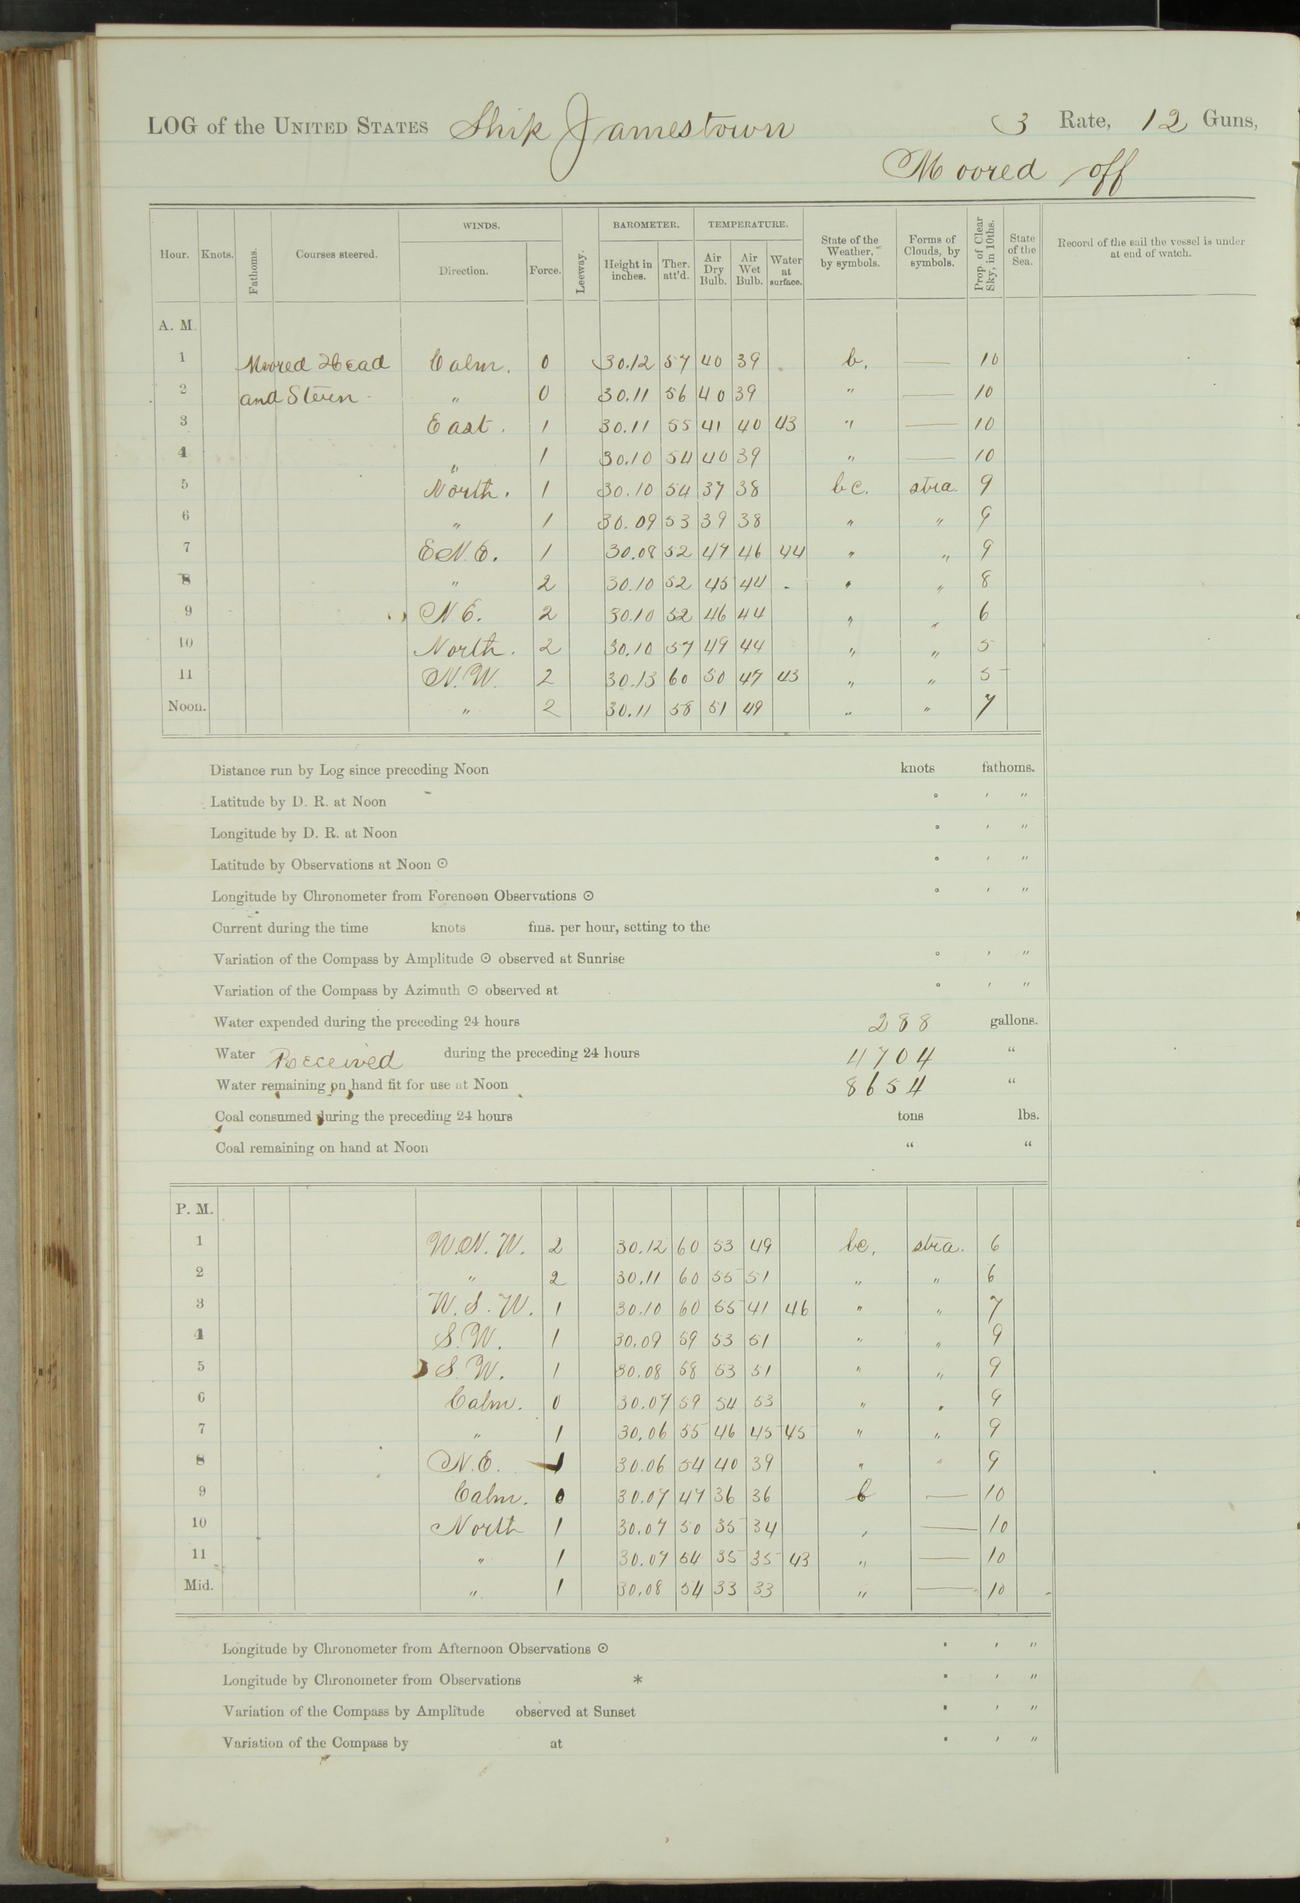 LOG of the UNITED STATES Ship Jamestown 3 Rate, 12 Guns,
Moored off
Hour. Knots. Fathoms. Courses steered. WINDS. Direction. Force. Leeway. BAROMETER. Height in inches. Ther. att'd. TEMPERATURE. Air Dry Bulb. Air Wet Bulb. Water at surface. State of the Weather, by symbols. Forms of Clouds, by symbols. Prop. of Clear Sky, in 10ths. State of the Sea. Record of the sail the vessel is under at end of watch.
A. M.
1 Moored Head Calm. 0 30.12 57 40 39 b. — 10
2 and Stern " 0 30.11 56 40 39 " — 10
3 East. 1 30.11 55 41 40 43 " — 10
4 " 1 30.10 54 40 39 " — 10
5 North. 1 30.10 54 37 38 bc. stra. 9
6 " 1 30.09 53 39 38 " " 9
7 E.N.E. 1 30.08 52 47 46 44 " " 9
8 " 2 30.10 52 45 44 " " 8
9 N.E. 2 30.10 52 46 44 " " 6
10 North. 2 30.10 57 49 44 " " 5
11 N.W. 2 30.13 60 50 47 43 " " 5
Noon. " 2 30.11 58 51 49 " " 7
Distance run by Log since preceding Noon knots fathoms.
Latitude by D. R. at Noon ° ′ ″
Longitude by D. R. at Noon ° ′ ″
Latitude by Observations at Noon ☉ ° ′ ″
Longitude by Chronometer from Forenoon Observations ☉ ° ′ ″
Current during the time knots fms. per hour, setting to the
Variation of the Compass by Amplitude ☉ observed at Sunrise ° ′ ″
Variation of the Compass by Azimuth ☉ observed at ° ′ ″
Water expended during the preceding 24 hours 288 gallons.
Water Received during the preceding 24 hours 4704 "
Water remaining on hand fit for use at Noon 8654 "
Coal consumed during the preceding 24 hours tons lbs.
Coal remaining on hand at Noon " "
P. M.
1 W.N.W. 2 30.12 60 53 49 bc. stra. 6
2 " 2 30.11 60 55 51 " " 6
3 W.S.W. 1 30.10 60 55 41 46 " " 7
4 S.W. 1 30.09 59 53 51 " " 9
5 S.W. 1 30.08 58 53 51 " " 9
6 Calm. 0 30.07 59 54 53 " " 9
7 " 1 30.06 55 46 45 45 " " 9
8 N.E. 1 30.06 54 40 39 " " 9
9 Calm. 0 30.07 47 36 36 b — 10
10 North 1 30.07 50 35 34 " — 10
11 " 1 30.07 54 35 35 43 " — 10
Mid. " 1 30.08 54 33 33 " — 10
Longitude by Chronometer from Afternoon Observations ☉ ° ′ ″
Longitude by Chronometer from Observations * ° ′ ″
Variation of the Compass by Amplitude observed at Sunset ° ′ ″
Variation of the Compass by at ° ′ ″